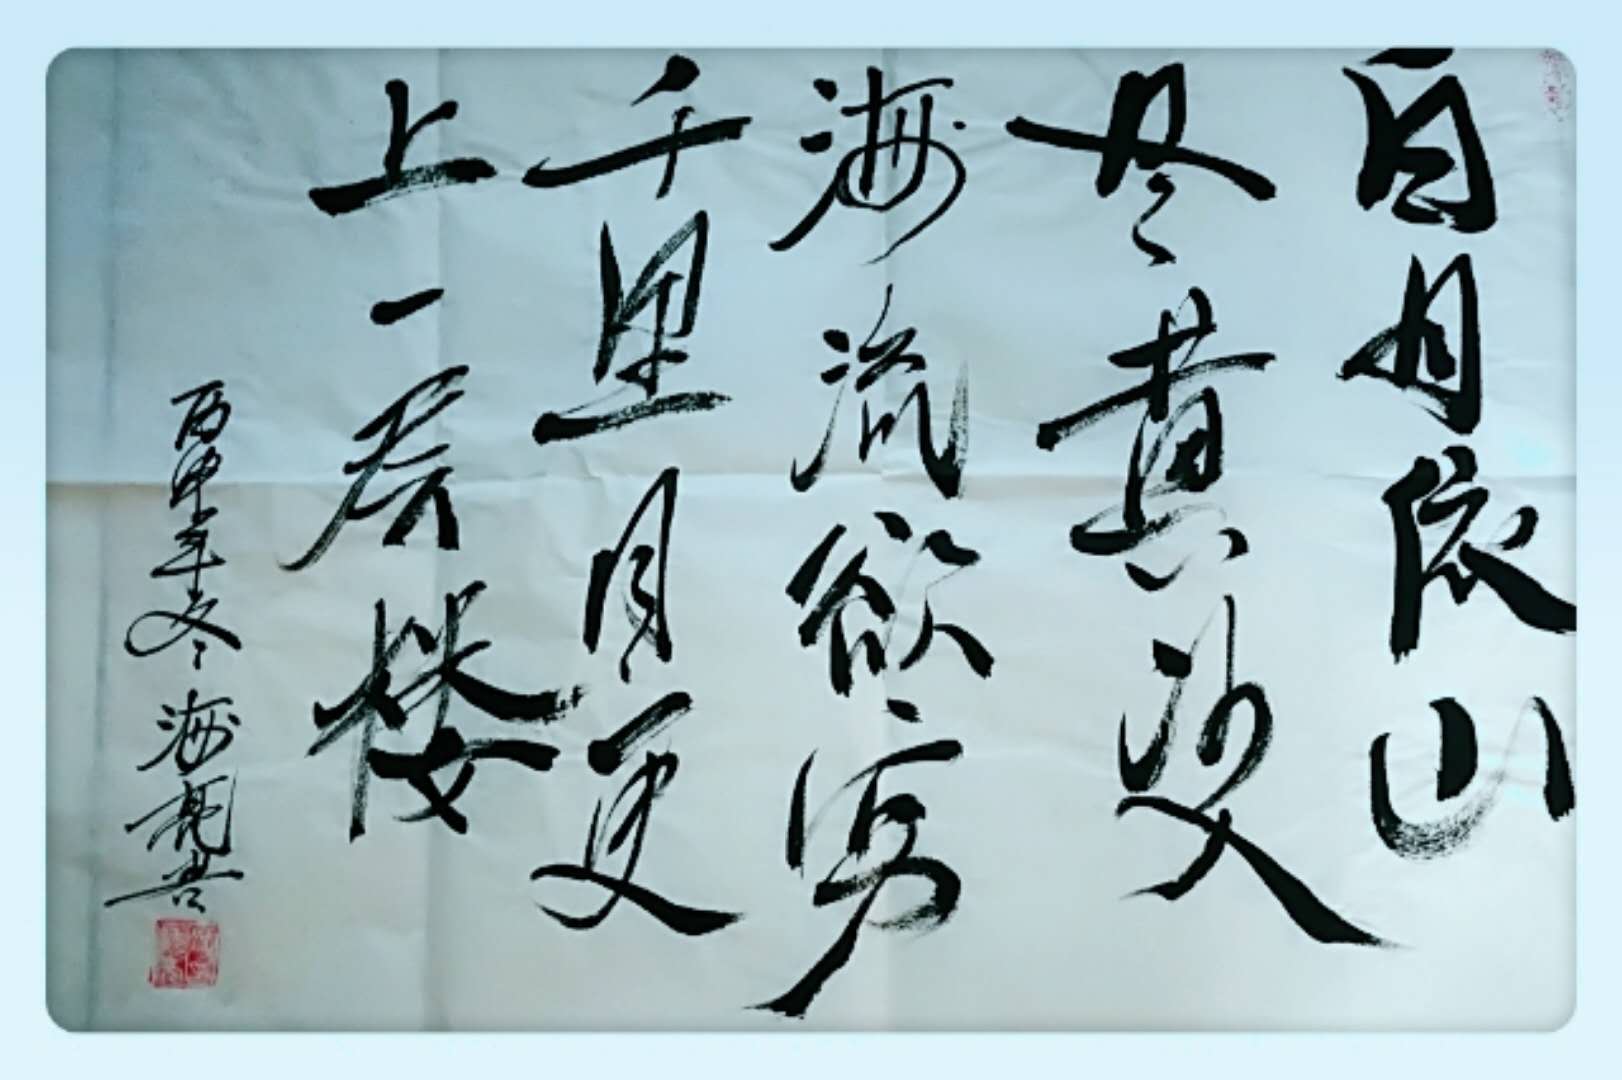 白日依山
尽黄河入
海流欲穷
千里目更
上一层楼
丙申年冬 海书